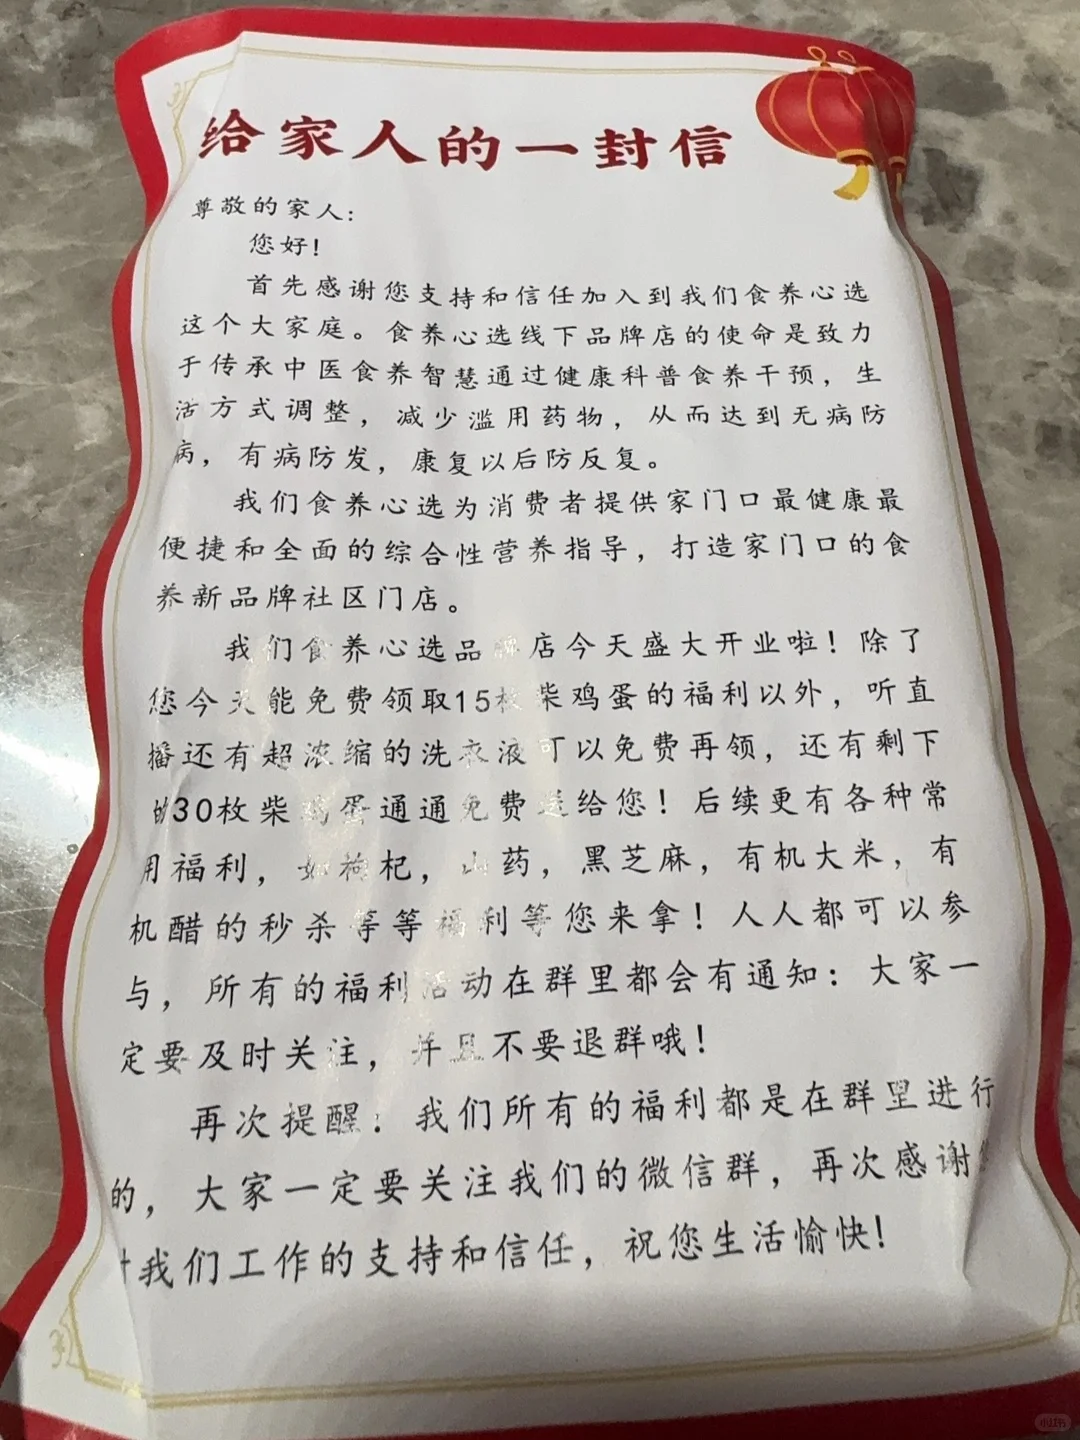 给家人的一封信
尊敬的家人：
您好！
首先感谢您支持和信任加入到我们食养心选
这个大家庭。食养心选线下品牌店的使命是致力
于传承中医食养智慧通过健康科普食养干预，生
活方式调整，减少滥用药物，从而达到无病防
病，有病防发，康复以后防反复。
我们食养心选为消费者提供家门口最健康最
便捷和全面的综合性营养指导，打造家门口的食
养新品牌社区门店。
我们食养心选品牌店今天盛大开业啦！除了
您今天能免费领取15枚柴鸡蛋的福利以外，听直
播还有超浓缩的洗衣液可以免费再领，还有剩下
的30枚柴鸡蛋通通免费送给您！后续更有各种常
用福利，如枸杞，山药，黑芝麻，有机大米，有
机醋的秒杀等等福利等您来拿！人人都可以参
与，所有的福利活动在群里都会有通知：大家一
定要及时关注，并且不要退群哦！
再次提醒：我们所有的福利都是在群里进行
的，大家一定要关注我们的微信群，再次感谢
我们工作的支持和信任，祝您生活愉快！